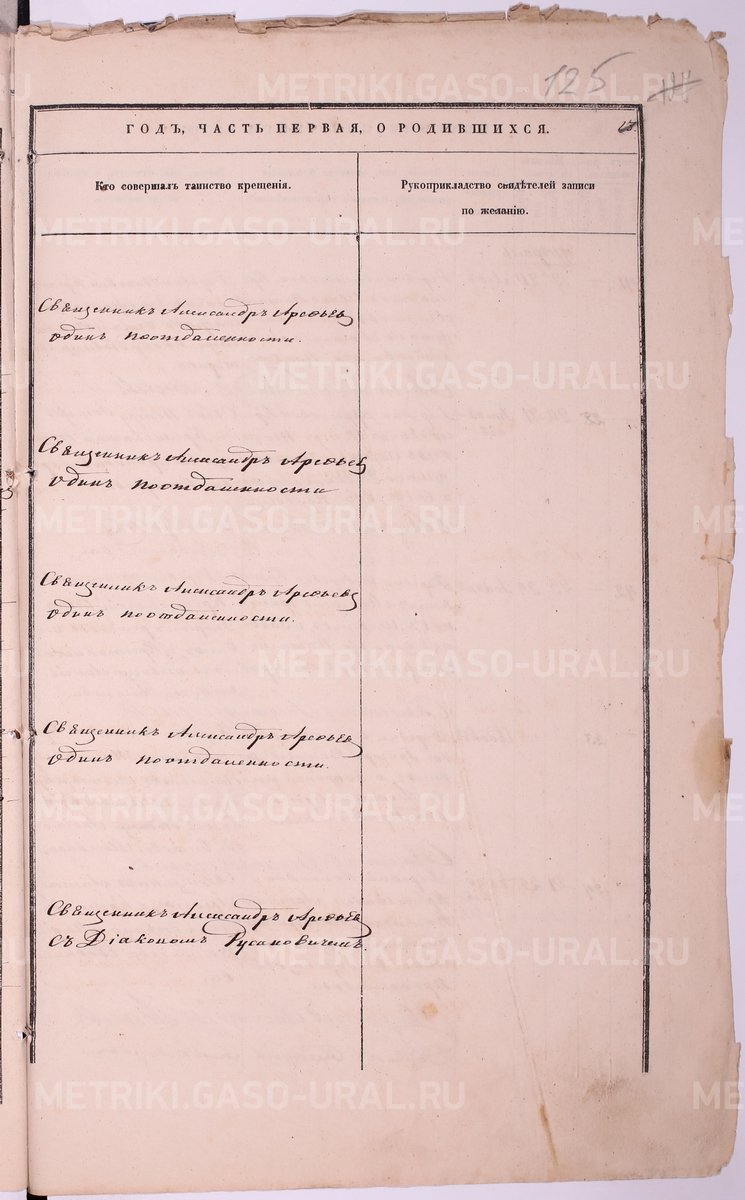 125
ГОДЪ, ЧАСТЬ ПЕРВАЯ, О РОДИВШИХСЯ.
Кто совершалъ таинство крещенія.
Рукоприкладство свидѣтелей записи
по желанію.
Священникъ Александръ Арефьевъ
одинъ поотдаленности.
Священникъ Александръ Арефьевъ
одинъ поотдаленности
Священникъ Александръ Арефьевъ
одинъ поотдаленности.
Священникъ Александръ Арефьевъ
одинъ поотдаленности.
Священникъ Александръ Арефьевъ
съ Діакономъ Русановичемъ.
METRIKI.GASO-URAL.RU